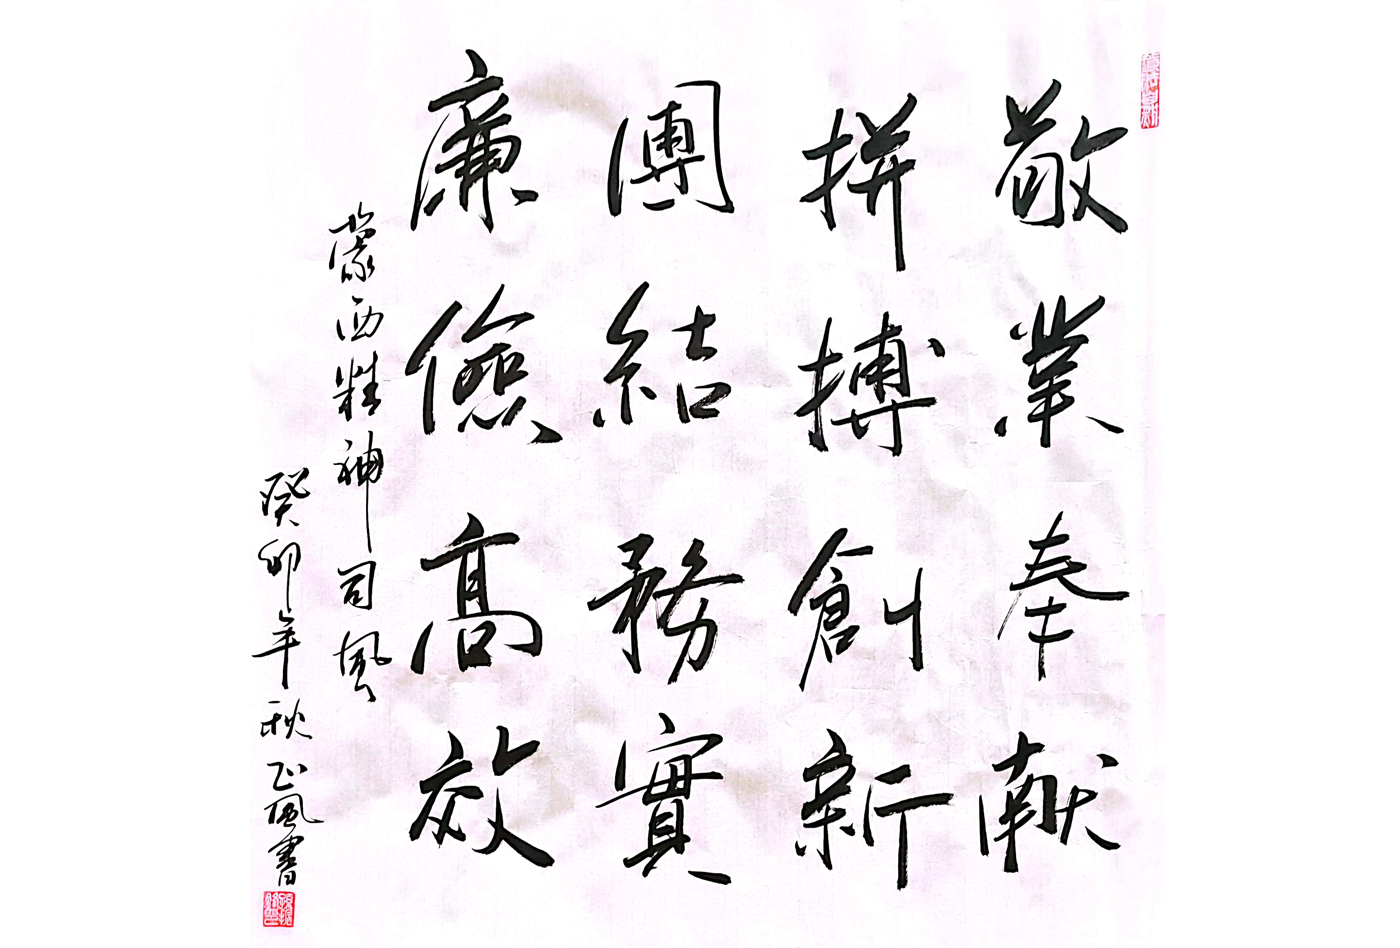 敬業奉献
拼搏創新
團結務實
廉儉高效
蒙西精神司風
癸卯年秋正風書